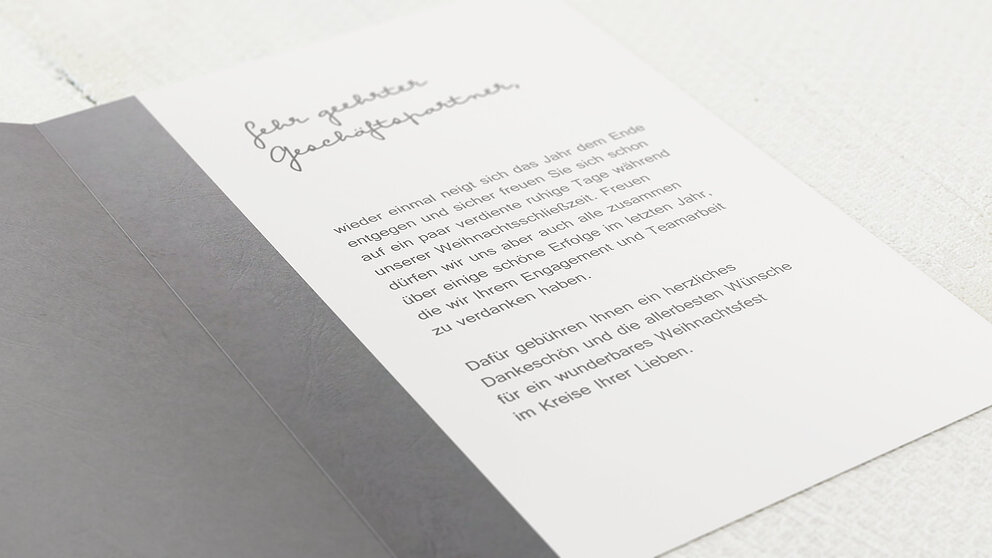 Sehr geehrter
Geschäftspartner,
wieder einmal neigt sich das Jahr dem Ende
entgegen und sicher freuen Sie sich schon
auf ein paar verdiente ruhige Tage während
unserer Weihnachtsschließzeit. Freuen
dürfen wir uns aber auch alle zusammen
über einige schöne Erfolge im letzten Jahr,
die wir Ihrem Engagement und Teamarbeit
zu verdanken haben.
Dafür gebühren Ihnen ein herzliches
Dankeschön und die allerbesten Wünsche
für ein wunderbares Weihnachtsfest
im Kreise Ihrer Lieben.